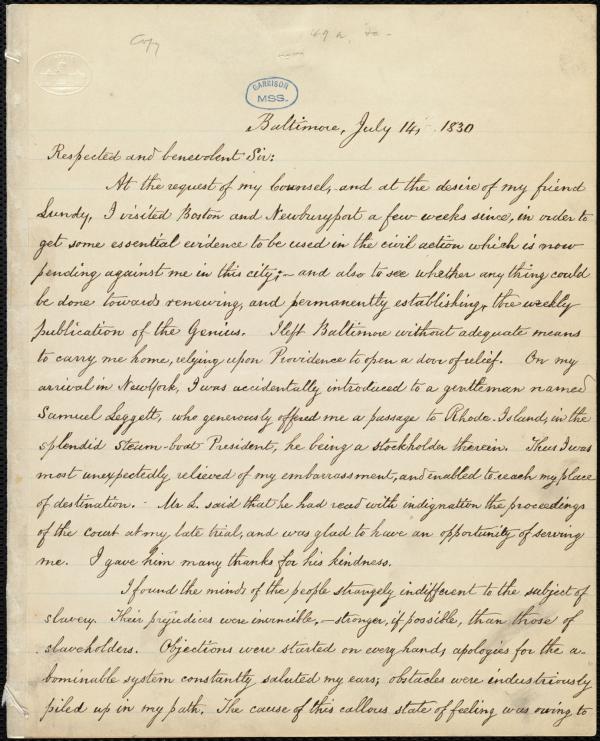 Copy
GARRISON
MSS.
Baltimore, July 14, 1830
Respected and benevolent Sir:
At the request of my Counsel, and at the desire of my friend
Lundy, I visited Boston and Newburyport a few weeks since, in order to
get some essential evidence to be used in the civil action which is now
pending against me in this city;— and also to see whether any thing could
be done towards renewing, and permanently establishing, the weekly
publication of the Genius. I left Baltimore without adequate means
to carry me home, relying upon Providence to open a door of relief. On my
arrival in New York, I was accidentally introduced to a gentleman named
Samuel Leggett, who generously offered me a passage to Rhode-Island, in the
splendid Steam-boat President, he being a stockholder therein. Thus I was
most unexpectedly relieved of my embarrassment, and enabled to reach my place
of destination. - Mr L. said that he had read with indignation the proceedings
of the court at my late trial, and was glad to have an opportunity of serving
me. I gave him many thanks for his kindness.
I found the minds of the people strangely indifferent to the subject of
slavery. Their prejudices were invincible,—stronger, if possible, than those of
slaveholders. Objections were started on every hand; apologies for the a-
bominable system constantly saluted my ears; obstacles were industriously
piled up in my path. The cause of this callous state of feeling was owing to